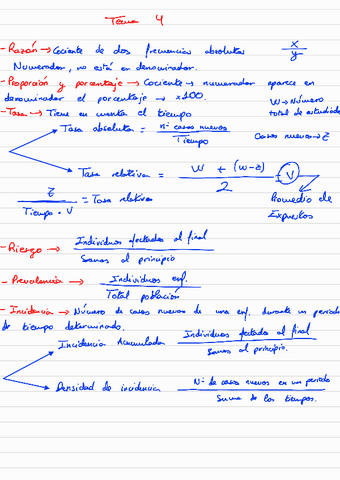 Tema 4
- Razón → Cociente de dos frecuencias absolutas x/y
Numerador, no está en denominador.
- Proporción y porcentaje → Cociente → numerador aparece en
denominador el porcentaje → x100.
- Tasa → Tiene en cuenta el tiempo
W → Número total de estudiados
Tasa absoluta = nº casos nuevos / Tiempo
Casos nuevos → z
Tasa relativa = W + (W-z) / 2 = V
z / Tiempo · V = Tasa relativa
Promedio de Expuestos
- Riesgo → Individuos afectados al final / Sanos al principio
- Prevalencia → Individuos enf. / Total población
- Incidencia → Número de casos nuevos de una enf. durante un periodo
de tiempo determinado.
Incidencia Acumulada Individuos afectados al final / Sanos al principio.
Densidad de incidencia Nº de casos nuevos en un periodo / Suma de los tiempos.